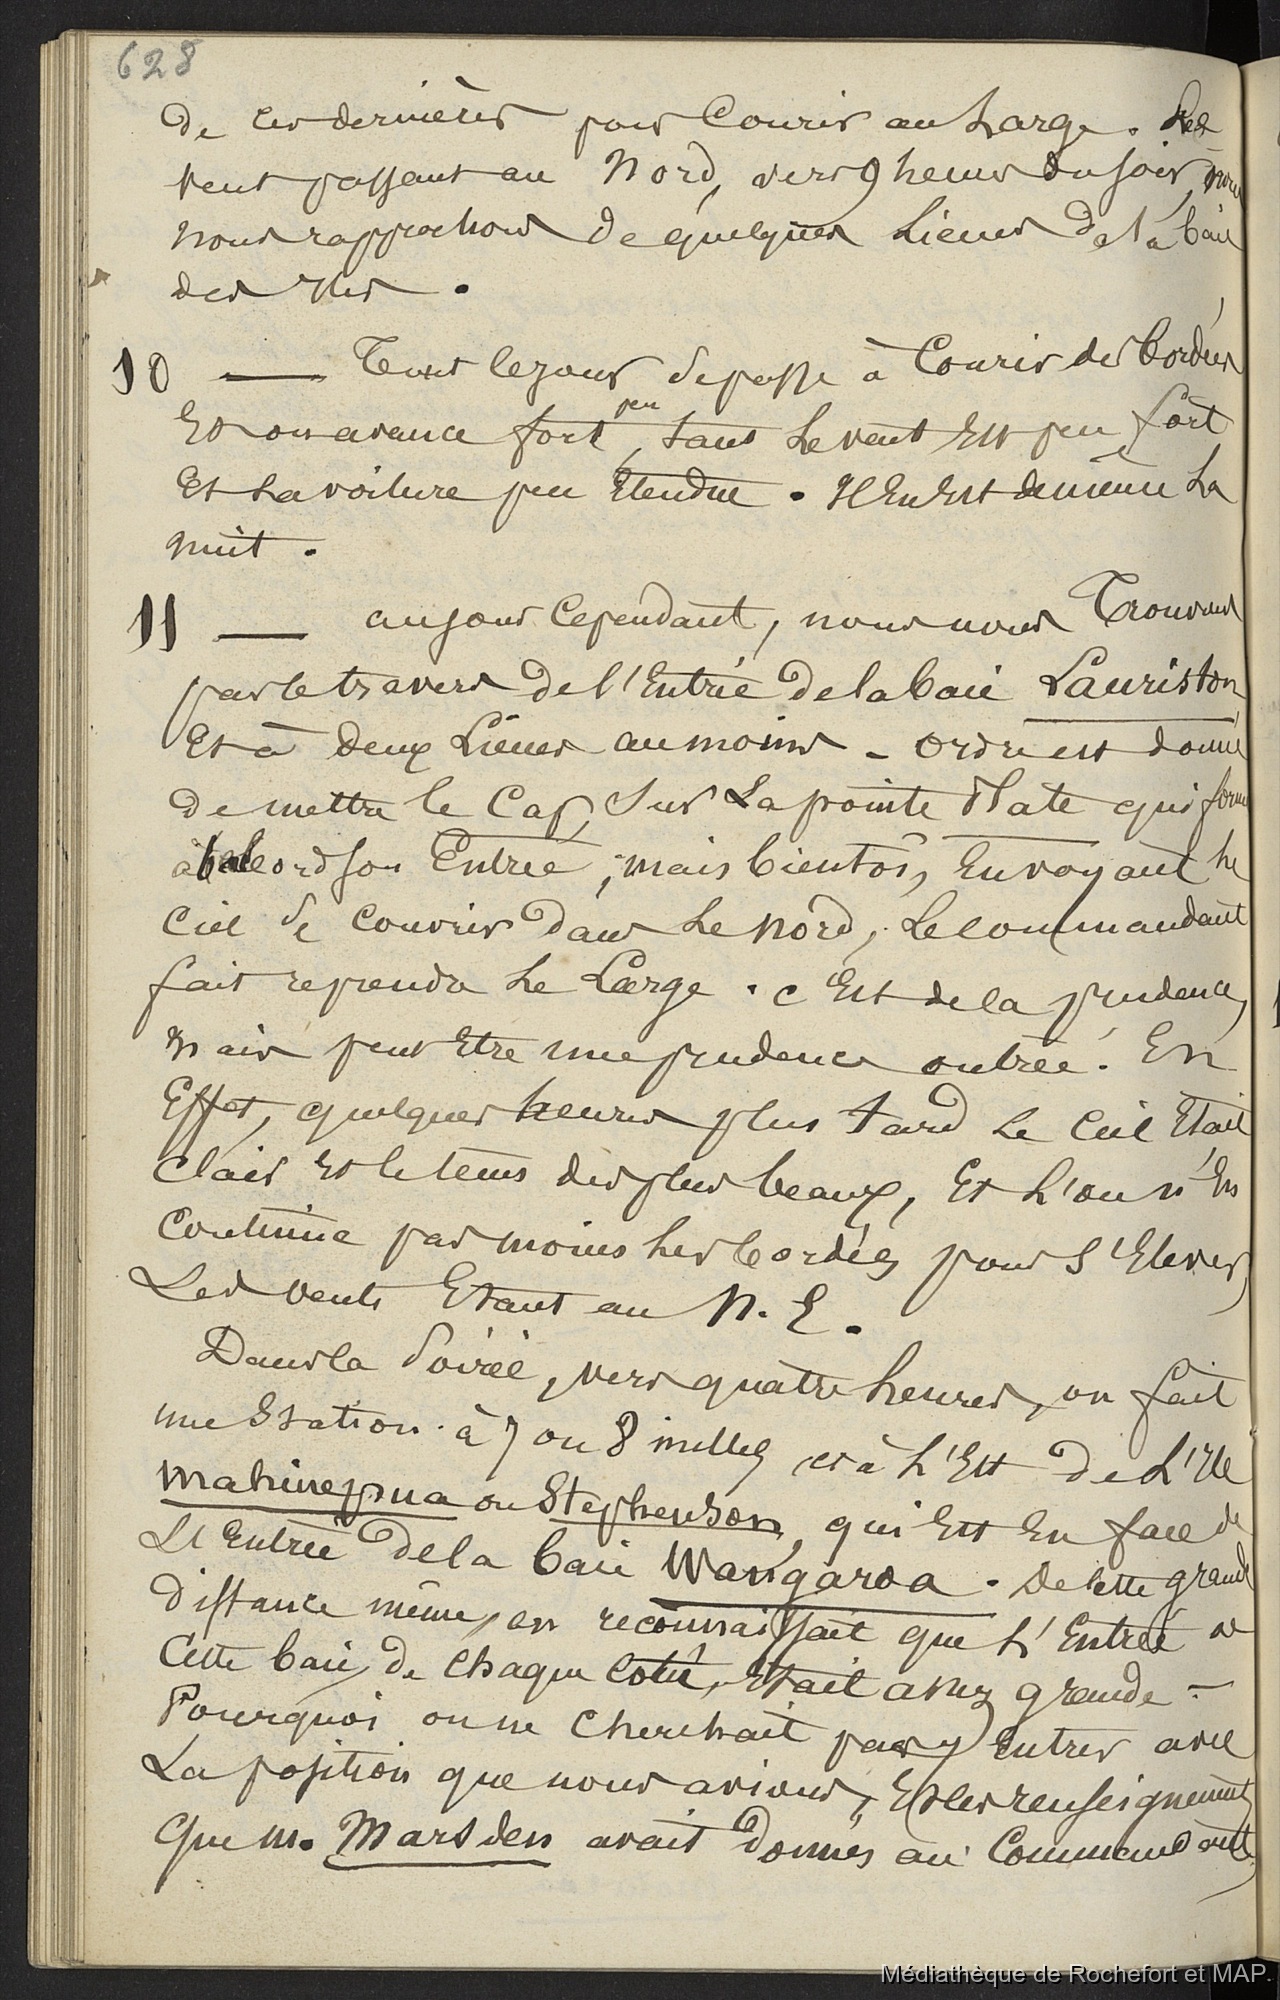 628
de ces dernières pour Courir au Large. Le
vent passant au Nord, vers 9 heures du soir, nous
nous rapprochons de quelques Lieues de la baie
des Iles.
10 — Tout le jour se passe à Courir des bordées
Et on avance fort peu, tant Le vent Est peu fort
Et La voilure peu Etendue. Il En Est de même La
nuit.
11 — au jour Cependant, nous nous Trouvons
par le travers de l'Entrée de la baie Lauriston
Et à deux Lieues au moins - ordre est donné
de mettre le Cap, Sur La pointe Plate qui forme
à babord son Entrée, mais bientôt, En voyant le
Ciel Se Couvrir dans Le Nord, Le commandant
fait reprendre Le Large. c'Est de la prudence,
Mais peut Etre une prudence outrée. En
Effet, quelques heures plus tard Le Ciel Etait
Clair Et le tems des plus beaux, Et L'on n'En
Continue pas moins Les bordées pour S'Elever,
Les vents Etant au N. E.
Dans la Soirée, vers quatre heures, on fait
une Station à 7 ou 8 milles et à L'Est de L'Ile
Mahinepua ou Stephenson, qui Est En face de
L'Entrée de la baie Wangaroa. De cette grande
distance même, on reconnaissait que L'Entrée de
Cette baie, de Chaque Coté, Etait assez grande -
Pourquoi on ne Cherchait pas y Entrer avec
La position que nous avions, Et les renseignements
que M. Marsden avait donnés au Commandant,
Médiathèque de Rochefort et MAP.